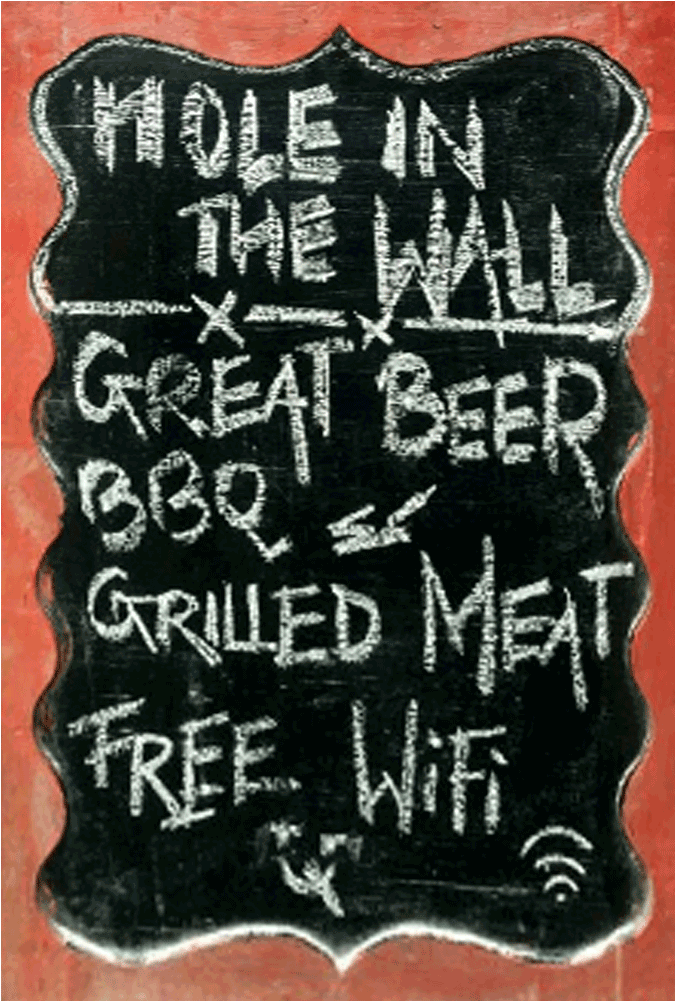 HOLE IN
THE WALL
GREAT BEER
BBQ
GRILLED MEAT
FREE WiFi